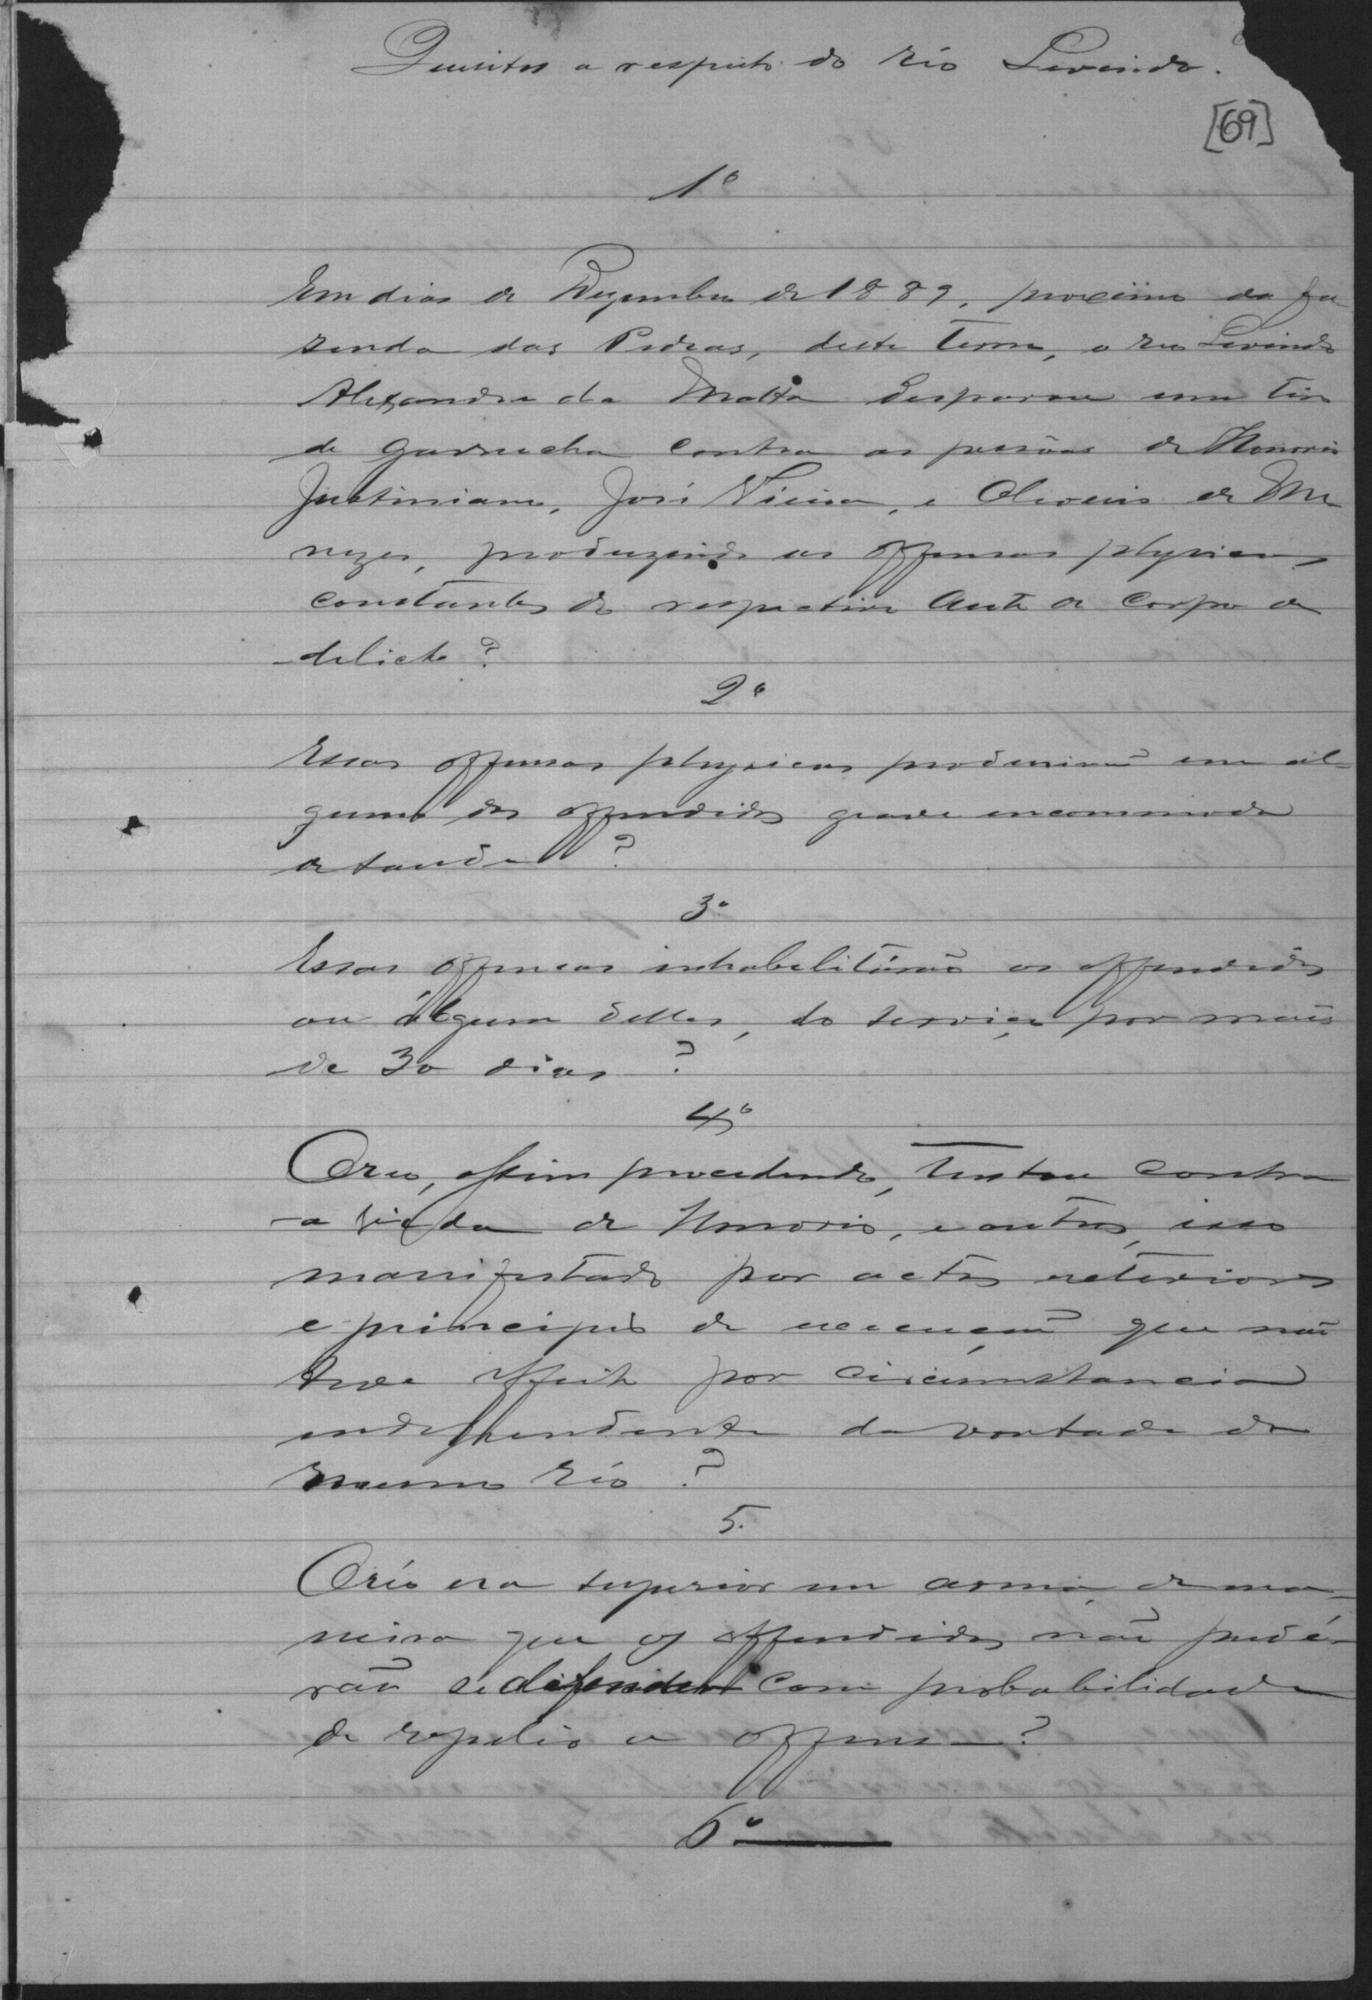 Quesitos a respeito do réo Levindo.
[69]
1º
Em dias de Dezembro de 1889, proximo da fa-
zenda das Pedras, deste Termo, o reo Levindo
Alexandre da Motta desparou um tiro
de garrucha contra as pessôas de Honorio
Justiniano, José Vieira, e Oliveira de Me-
nezes, produzindo as offensas physicas,
constantes do respectivo Auto de corpo de
delicto?
2º
Essas offensas physicas produsirão em al-
gum dos offendidos grave incommodo
de saude?
3º
Essas offensas inhabilitárão os offendidos
ou álgum delles, do serviço por mais
de 30 dias?
4º
O reo, assim procedendo, tentou contra
a vida de Honorio, e outros, isso
manifestado por actos exteriores
e principio de execução que não
teve effeito por circumstancia
independente da vontade do
mesmo réo?
5.
O réo era superior em arma, de ma-
neira que os offendidos não pudé-
rão se defender com probabilidade
de repelir a offensa?
6º